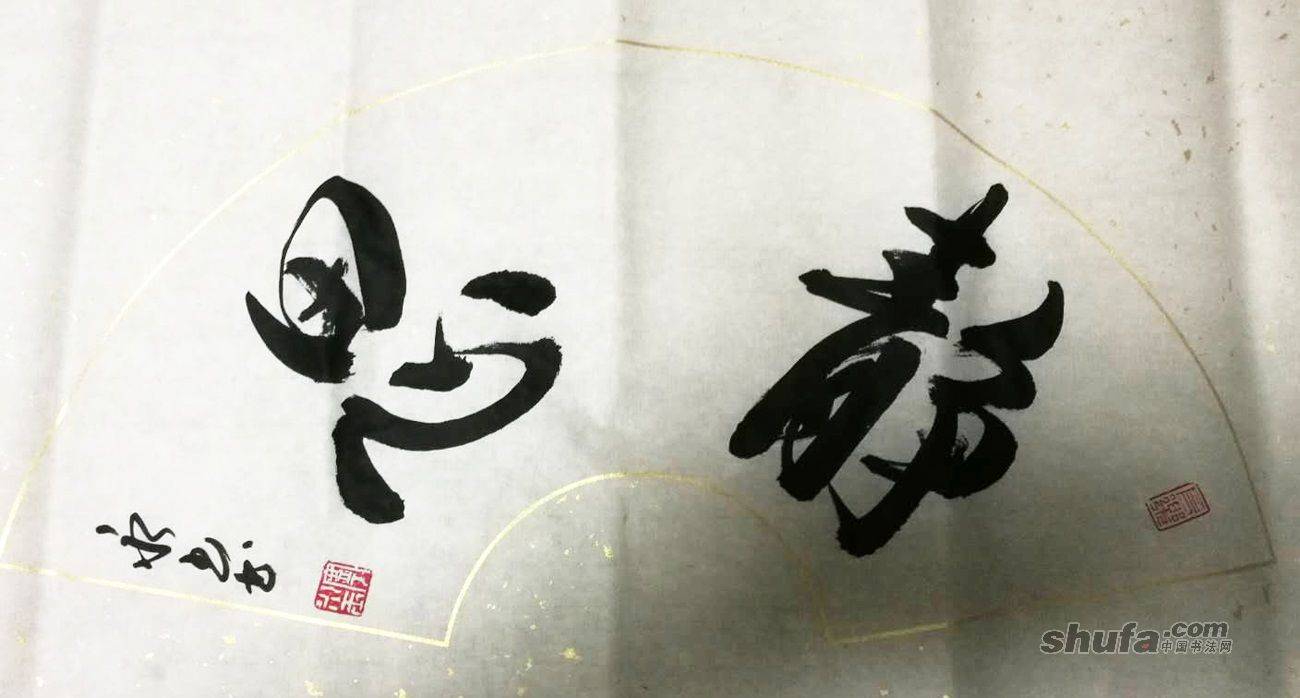 静思
永思书
shufa.com
中国书法网